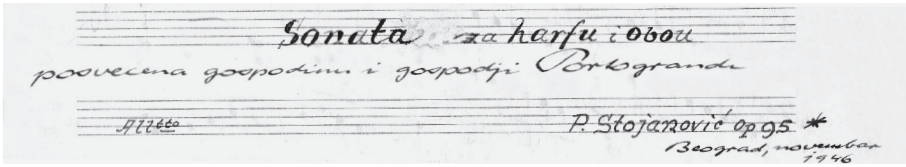 Sonata za harfu i obou
posvećena gospodinu i gospodji Portogrande
Alltto P. Stojanović op 95 *
Beograd, novembar
1946